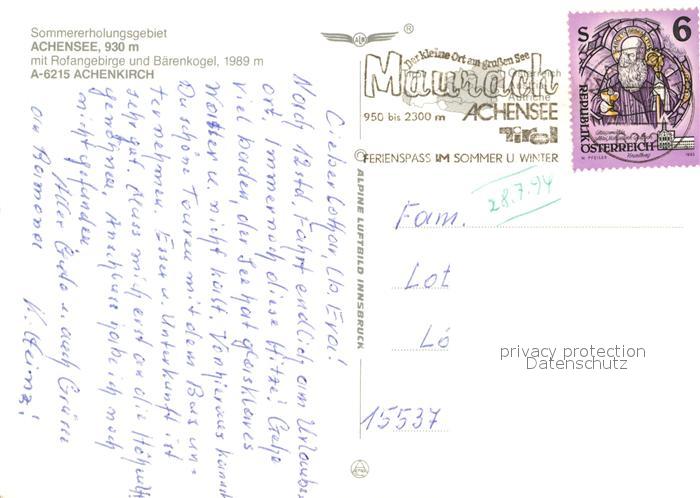 Sommererholungsgebiet
ACHENSEE, 930 m
mit Rofangebirge und Bärenkogel, 1989 m
A-6215 ACHENKIRCH
Lieber Lothar, lb. Eva!
Nach 12 std. Fahrt endlich am Urlaubs-
ort. Immer noch diese Hitze! Gehe
viel baden, der See hat glasklares
Wasser u. nicht kalt. Von hier aus kannst
Du schöne Touren mit dem Bus un-
ternehmen. Essen u. Unterkunft ist
sehr gut. Muss mich erst an die Höhenluft
gewöhnen, Anschluss habe ich noch
nicht gefunden
Alles Gute u. auch Grüsse
an Ramona
K. Heinz!
ALPINE LUFTBILD INNSBRUCK
®
Der kleine Ort am großen See
Maurach
ACHENSEE
950 bis 2300 m
Tirol
FERIENSPASS IM SOMMER U WINTER
S 6
REPUBLIK
ÖSTERREICH
28.7.94
Fam.
Lot
Lö
privacy protection
Datenschutz
15537